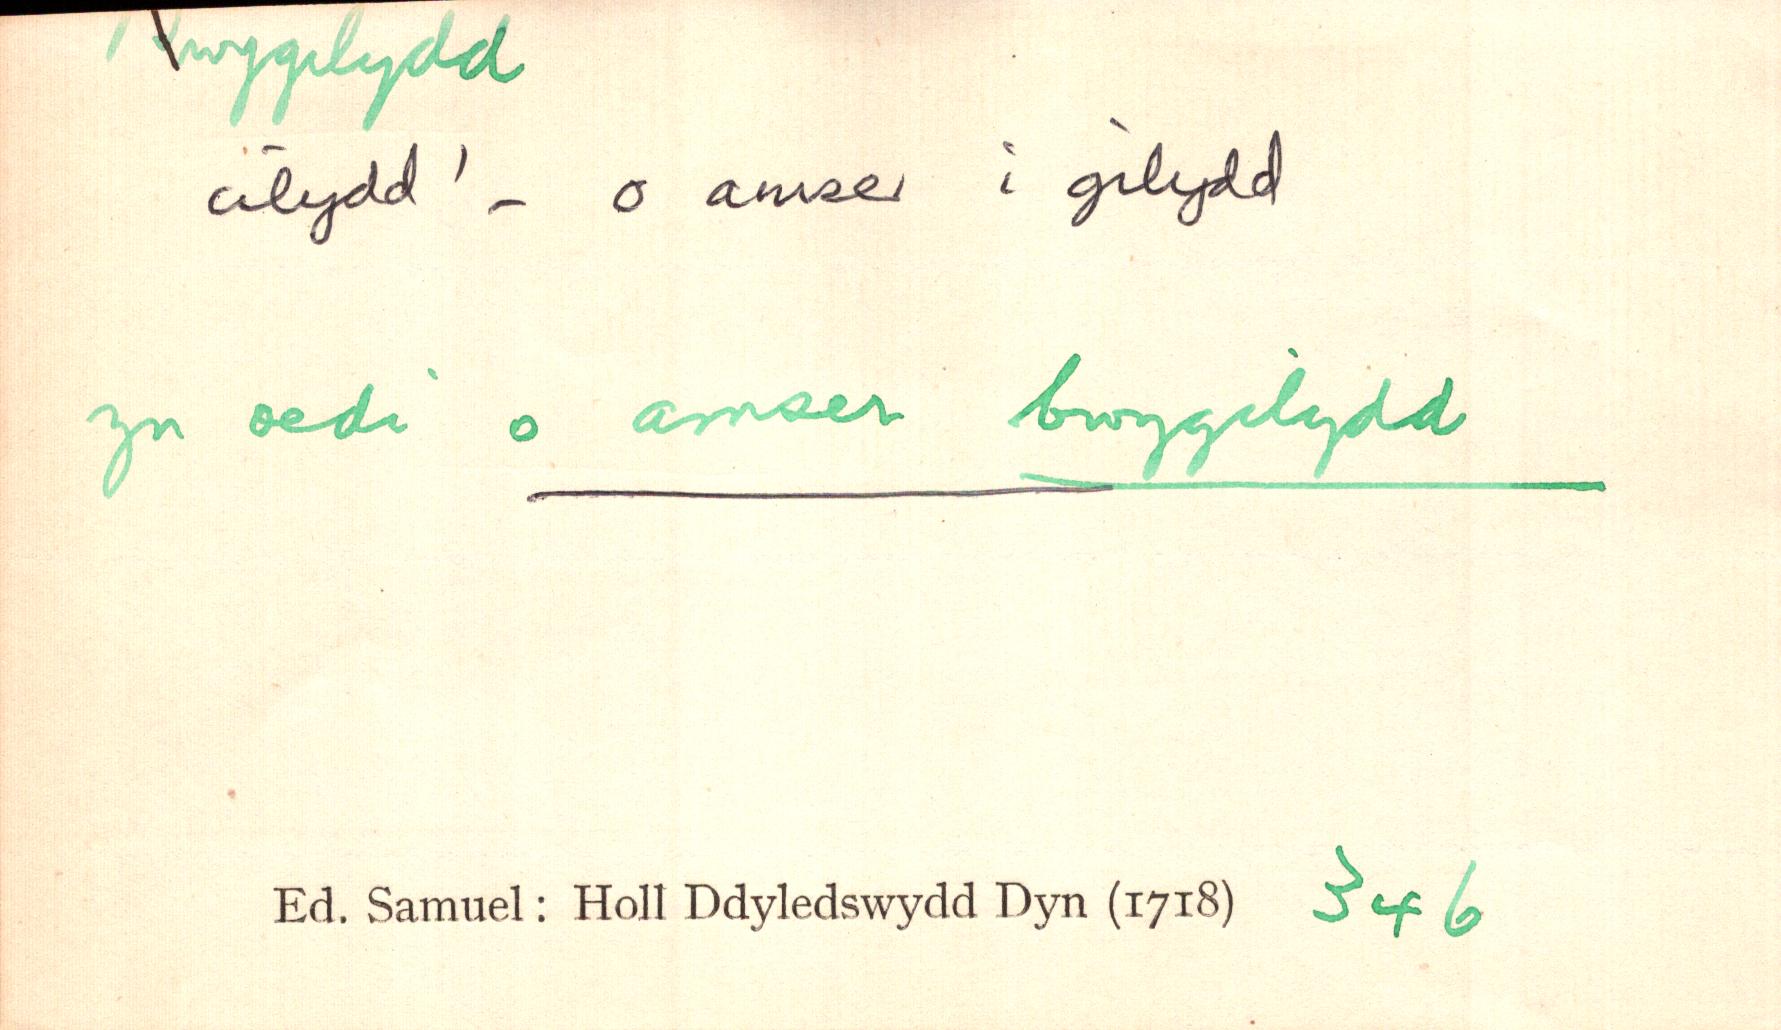 bwygilydd
cilydd¹ – o amser i gilydd
yn oedi o amser bwygilydd
Ed. Samuel: Holl Ddyledswydd Dyn (1718) 346